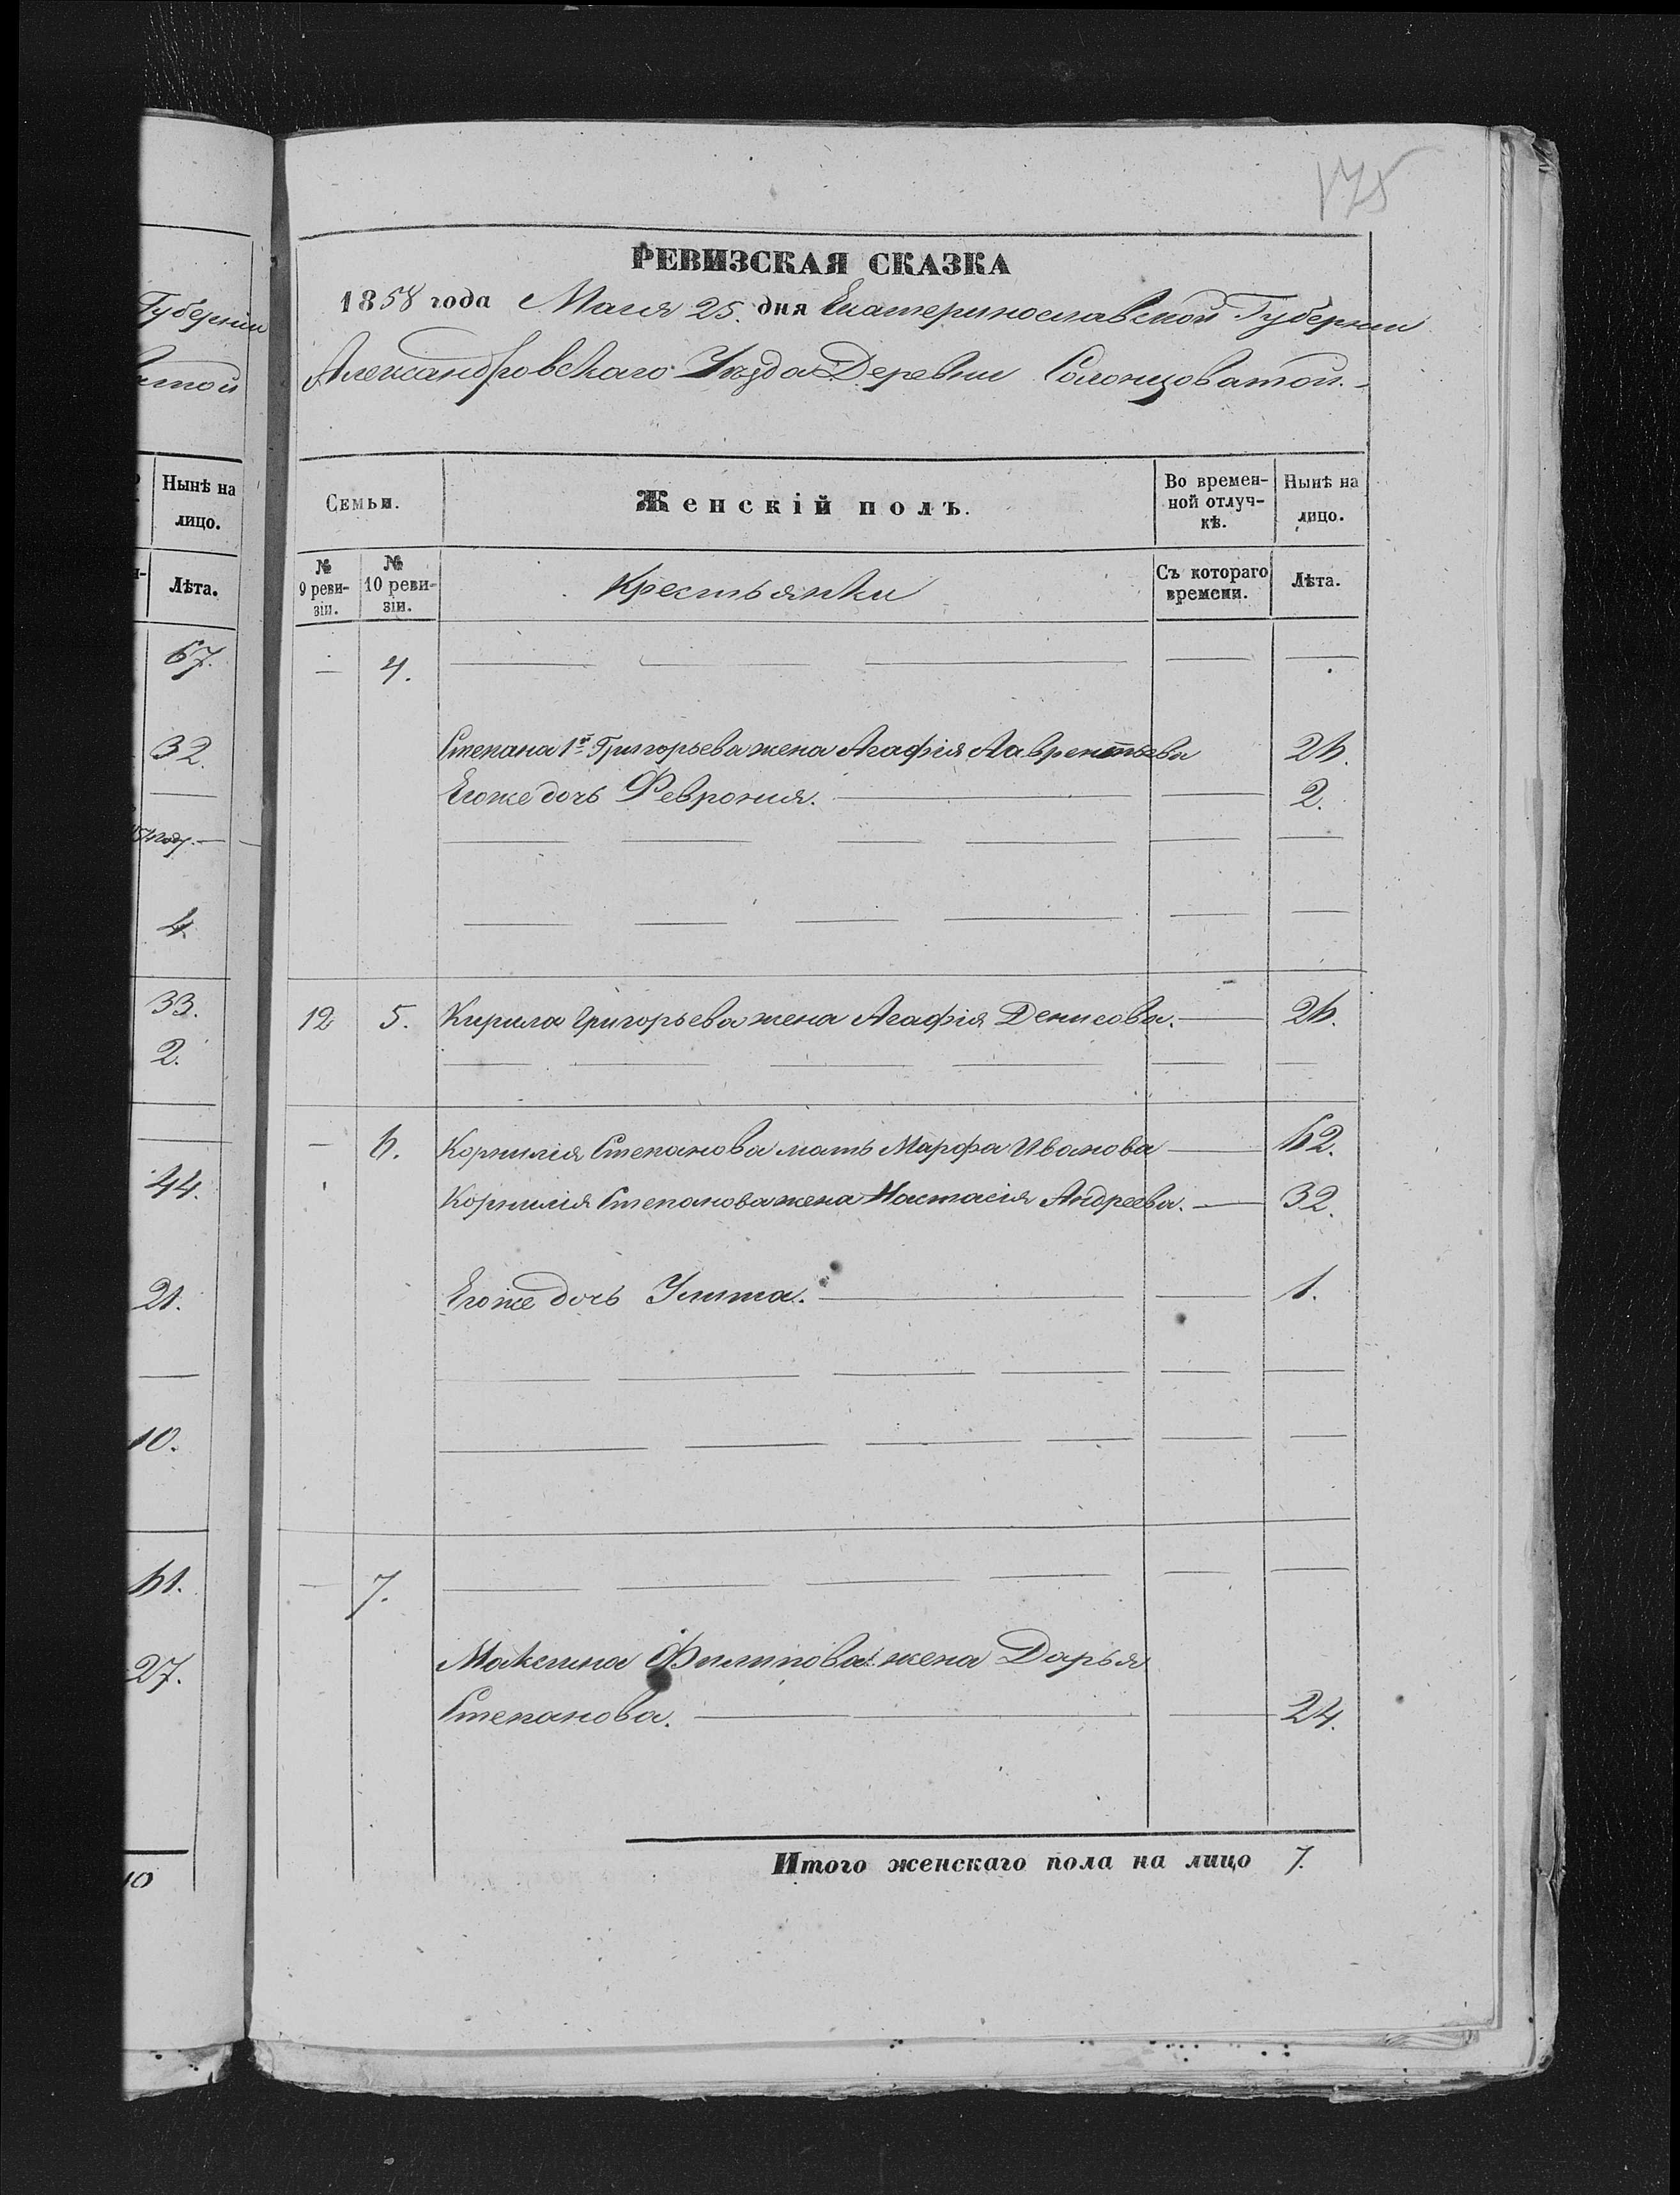 175
Губерніи
атой
Нынѣ на
лицо.
Лѣта.
67.
32.
году.
4.
33.
2.
44.
21.
10.
61.
27.
10
РЕВИЗСКАЯ СКАЗКА
1858 года Маия 25. дня Екатеринославской Губернии
Александровскаго Уѣзда Деревни Солонцоватой.
Семьи. Женскій полъ. Во времен- Нынѣ на
ной отлуч- лицо.
кѣ.
№ № Крестьянки Съ котораго Лѣта.
9 реви- 10 реви- времени.
зіи. зіи.
4.
Степана 1й Григорьева жена Агафія Лаврентьева 26.
Егоже дочь Феврония. 2.
12 5. Кирила Григорьева жена Агафія Денисова. 26.
6. Корнилія Степанова мать Марфа Иванова 62.
Корнилія Степанова жена Настасія Андреева. 32.
Егоже дочь Улита. 1.
7.
Максима Филипова жена Дарья
Степанова. 24.
Итого женскаго пола на лицо 7.